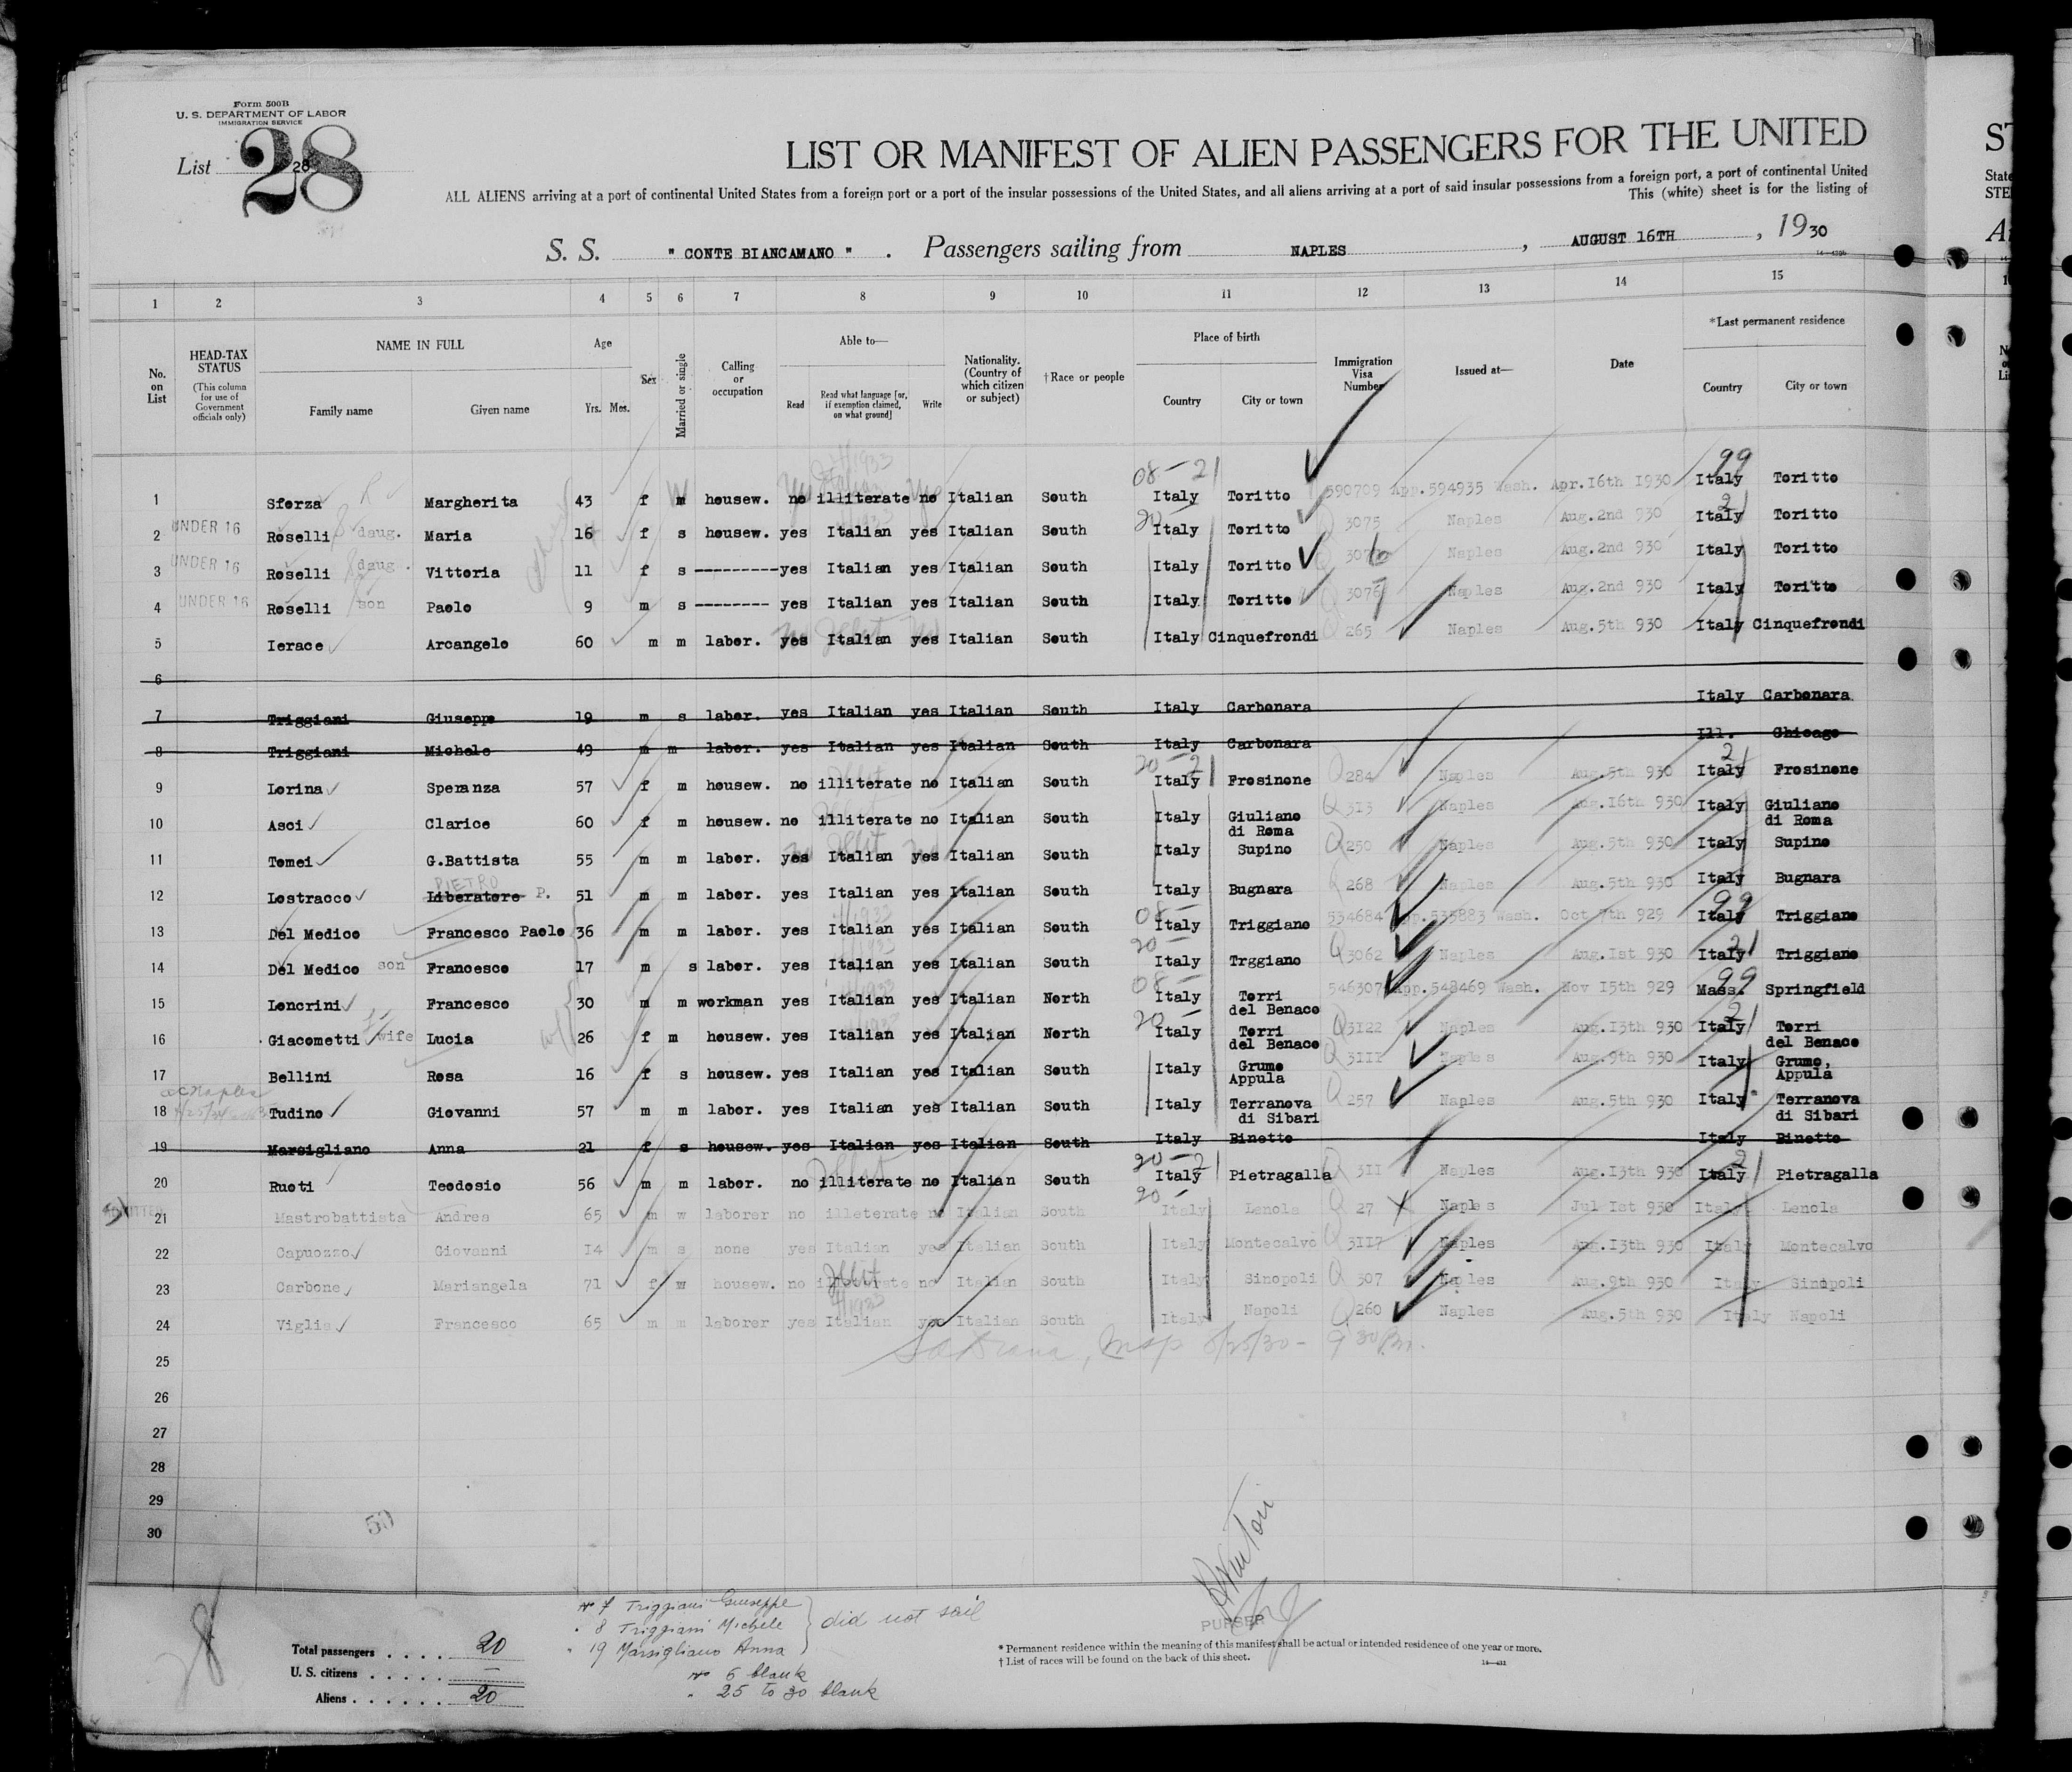 Form 500B
U. S. DEPARTMENT OF LABOR
IMMIGRATION SERVICE
List 28
28
LIST OR MANIFEST OF ALIEN PASSENGERS FOR THE UNITED
ALL ALIENS arriving at a port of continental United States from a foreign port or a port of the insular possessions of the United States, and all aliens arriving at a port of said insular possessions from a foreign port, a port of continental United
This (white) sheet is for the listing of
S. S. " CONTE BIANCAMANO " . Passengers sailing from NAPLES , AUGUST 16TH , 1930
1 2 3 4 5 6 7 8 9 10 11 12 13 14 15
No. on List
HEAD-TAX STATUS
(This column for use of Government officials only)
NAME IN FULL
Family name Given name
Age
Yrs. Mos.
Sex
Married or single
Calling or occupation
Able to—
Read Read what language [or, if exemption claimed, on what ground] Write
Nationality. (Country of which citizen or subject)
†Race or people
Place of birth
Country City or town
Immigration Visa Number
Issued at—
Date
*Last permanent residence
Country City or town
08- 21 99
1 Sferza Margherita 43 f m housew. no illiterate no Italian South Italy Toritto 590709 App.594935 Wash. Apr.16th 1930 Italy Toritto
2 UNDER 16 Roselli daug. Maria 16 f s housew. yes Italian yes Italian South Italy Toritto Q 3075 Naples Aug.2nd 930 Italy Toritto
3 UNDER 16 Roselli daug. Vittoria 11 f s ---------yes Italian yes Italian South Italy Toritto Q 3076 Naples Aug.2nd 930 Italy Toritto
4 UNDER 16 Roselli son Paolo 9 m s -------- yes Italian yes Italian South Italy Toritto Q 3076 7 Naples Aug.2nd 930 Italy Toritto
5 Ierace Arcangelo 60 m m labor. yes Italian yes Italian South Italy Cinquefrondi Q 265 Naples Aug.5th 930 Italy Cinquefrondi
6
7 Triggiani Giuseppe 19 m s labor. yes Italian yes Italian South Italy Carbonara Italy Carbonara
8 Triggiani Michele 49 m m labor. yes Italian yes Italian South Italy Carbonara Ill. Chicago
20- 21 21
9 Lorina Speranza 57 f m housew. no illiterate no Italian South Italy Frosinone Q 284 Naples Aug.5th 930 Italy Frosinone
10 Asci Clarice 60 f m housew. no illiterate no Italian South Italy Giuliano di Roma Q 313 Naples Aug.16th 930 Italy Giuliano di Roma
11 Tomei G.Battista 55 m m labor. yes Italian yes Italian South Italy Supino Q 250 Naples Aug.5th 930 Italy Supino
PIETRO
12 Lostracco Liberatore P. 51 m m labor. yes Italian yes Italian South Italy Bugnara Q 268 Naples Aug.5th 930 Italy Bugnara
08- 99
13 Del Medico Francesco Paolo 36 m m labor. yes Italian yes Italian South Italy Triggiano 534684 App.535883 Wash. Oct 7th 929 Italy Triggiano
20- 21
14 Del Medico son Francesco 17 m s labor. yes Italian yes Italian South Italy Trggiano Q 3062 Naples Aug.1st 930 Italy Triggiano
08- 99
15 Loncrini Francesco 30 m m workman yes Italian yes Italian North Italy Torri del Benaco 546307 App.548469 Wash. Nov 15th 929 Mass. Springfield
20- 21
16 Giacometti wife Lucia 26 f m housew. yes Italian yes Italian North Italy Torri del Benaco Q 3122 Naples Aug.13th 930 Italy Torri del Benaco
17 Bellini Rosa 16 f s housew. yes Italian yes Italian South Italy Grumo Appula Q 3111 Naples Aug.9th 930 Italy Grumo, Appula
18 Tudino Giovanni 57 m m labor. yes Italian yes Italian South Italy Terranova di Sibari Q 257 Naples Aug.5th 930 Italy Terranova di Sibari
19 Marsigliano Anna 21 f s housew. yes Italian yes Italian South Italy Binetto Italy Binetto
20- 21 21
20 Ruoti Teodosio 56 m m labor. no illiterate no Italian South Italy Pietragalla Q 311 Naples Aug.13th 930 Italy Pietragalla
20-
21 Mastrobattista Andrea 65 m w laborer no illeterate no Italian South Italy Lenola Q 27 Naples Jul 1st 930 Italy Lenola
22 Capuozzo Giovanni 14 m s none yes Italian yes Italian South Italy Montecalvo Q 3117 Naples Aug.13th 930 Italy Montecalvo
23 Carbone Mariangela 71 f w housew. no illiterate no Italian South Italy Sinopoli Q 307 Naples Aug.9th 930 Italy Sinopoli
24 Viglia Francesco 65 m m laborer yes Italian yes Italian South Italy Napoli Q 260 Naples Aug.5th 930 Italy Napoli
25
26
27
28
29
30
50
Total passengers . . . . 20
U. S. citizens . . . . . —
Aliens . . . . . . 20
No 7 Triggiani Giuseppe
" 8 Triggiani Michele
" 19 Marsigliano Anna
did not sail
No 6 blank
" 25 to 30 blank
PURSER
* Permanent residence within the meaning of this manifest shall be actual or intended residence of one year or more.
† List of races will be found on the back of this sheet.